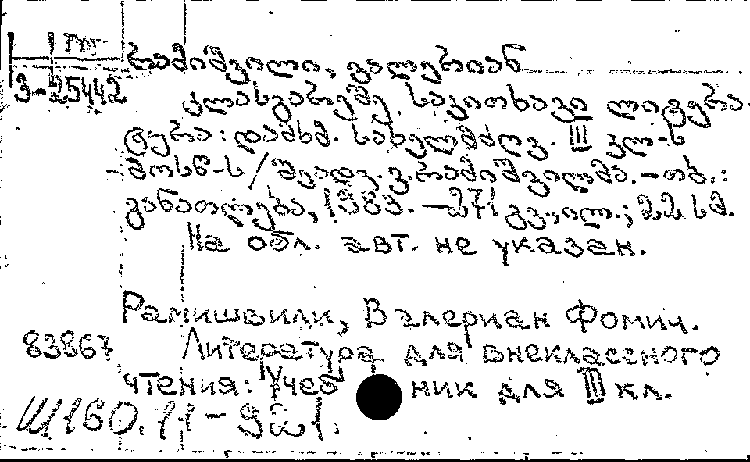 რამიშვილი, ვალერიან
3-25442
კლასგარეშე საკითხავი ლიტერა-
ტურა: დამხმ. სახელმძღვ. III კლ-ს
მოსწ-ს / შეადგ. ვ. რამიშვილმა. – თბ.:
განათლება, 1983. – 271 გვ., ილ.; 22 სმ.
На обл. авт. не указан.
Рамишвили, Валериан Фомич.
83867 Литература для внеклассного
чтения: Учеб ник для III кл.
Ш160.11-921.